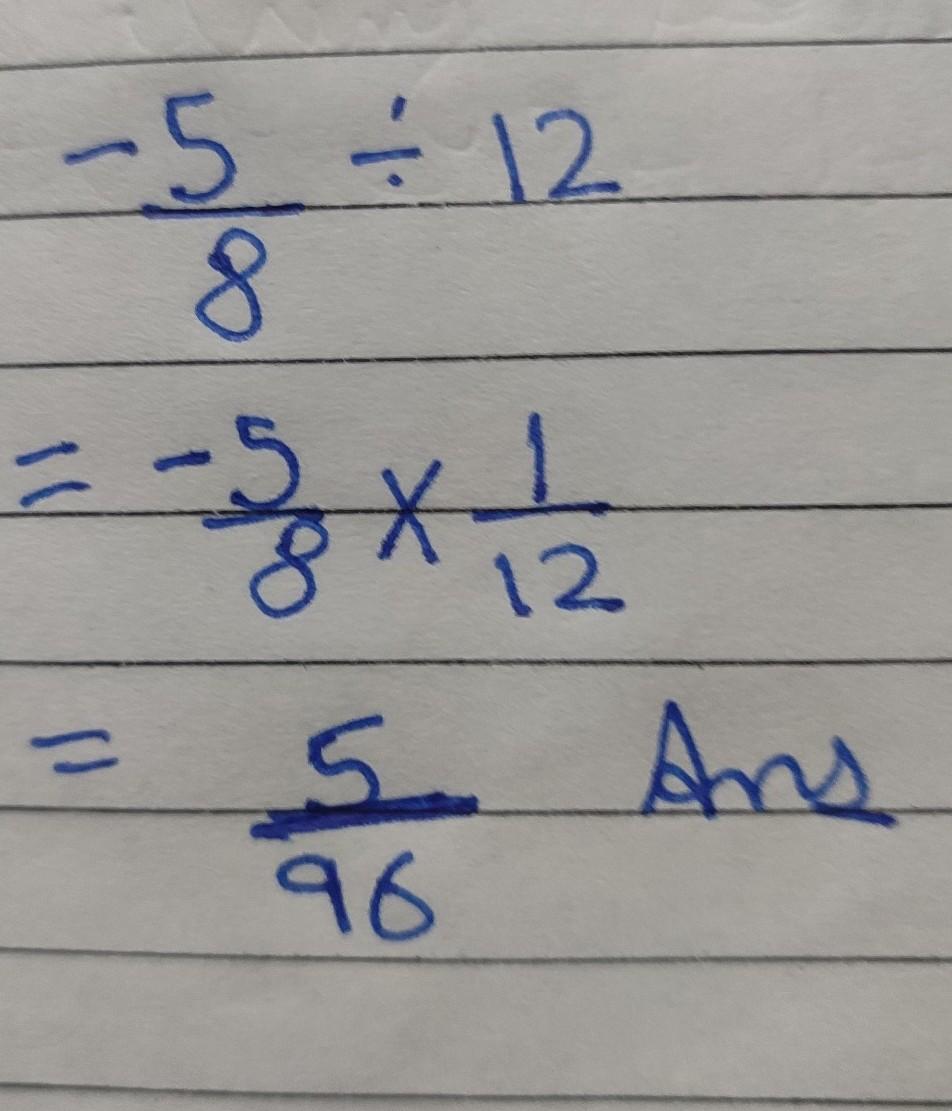 -5/8 ÷ 12
= -5/8 × 1/12
= 5/96 Ans